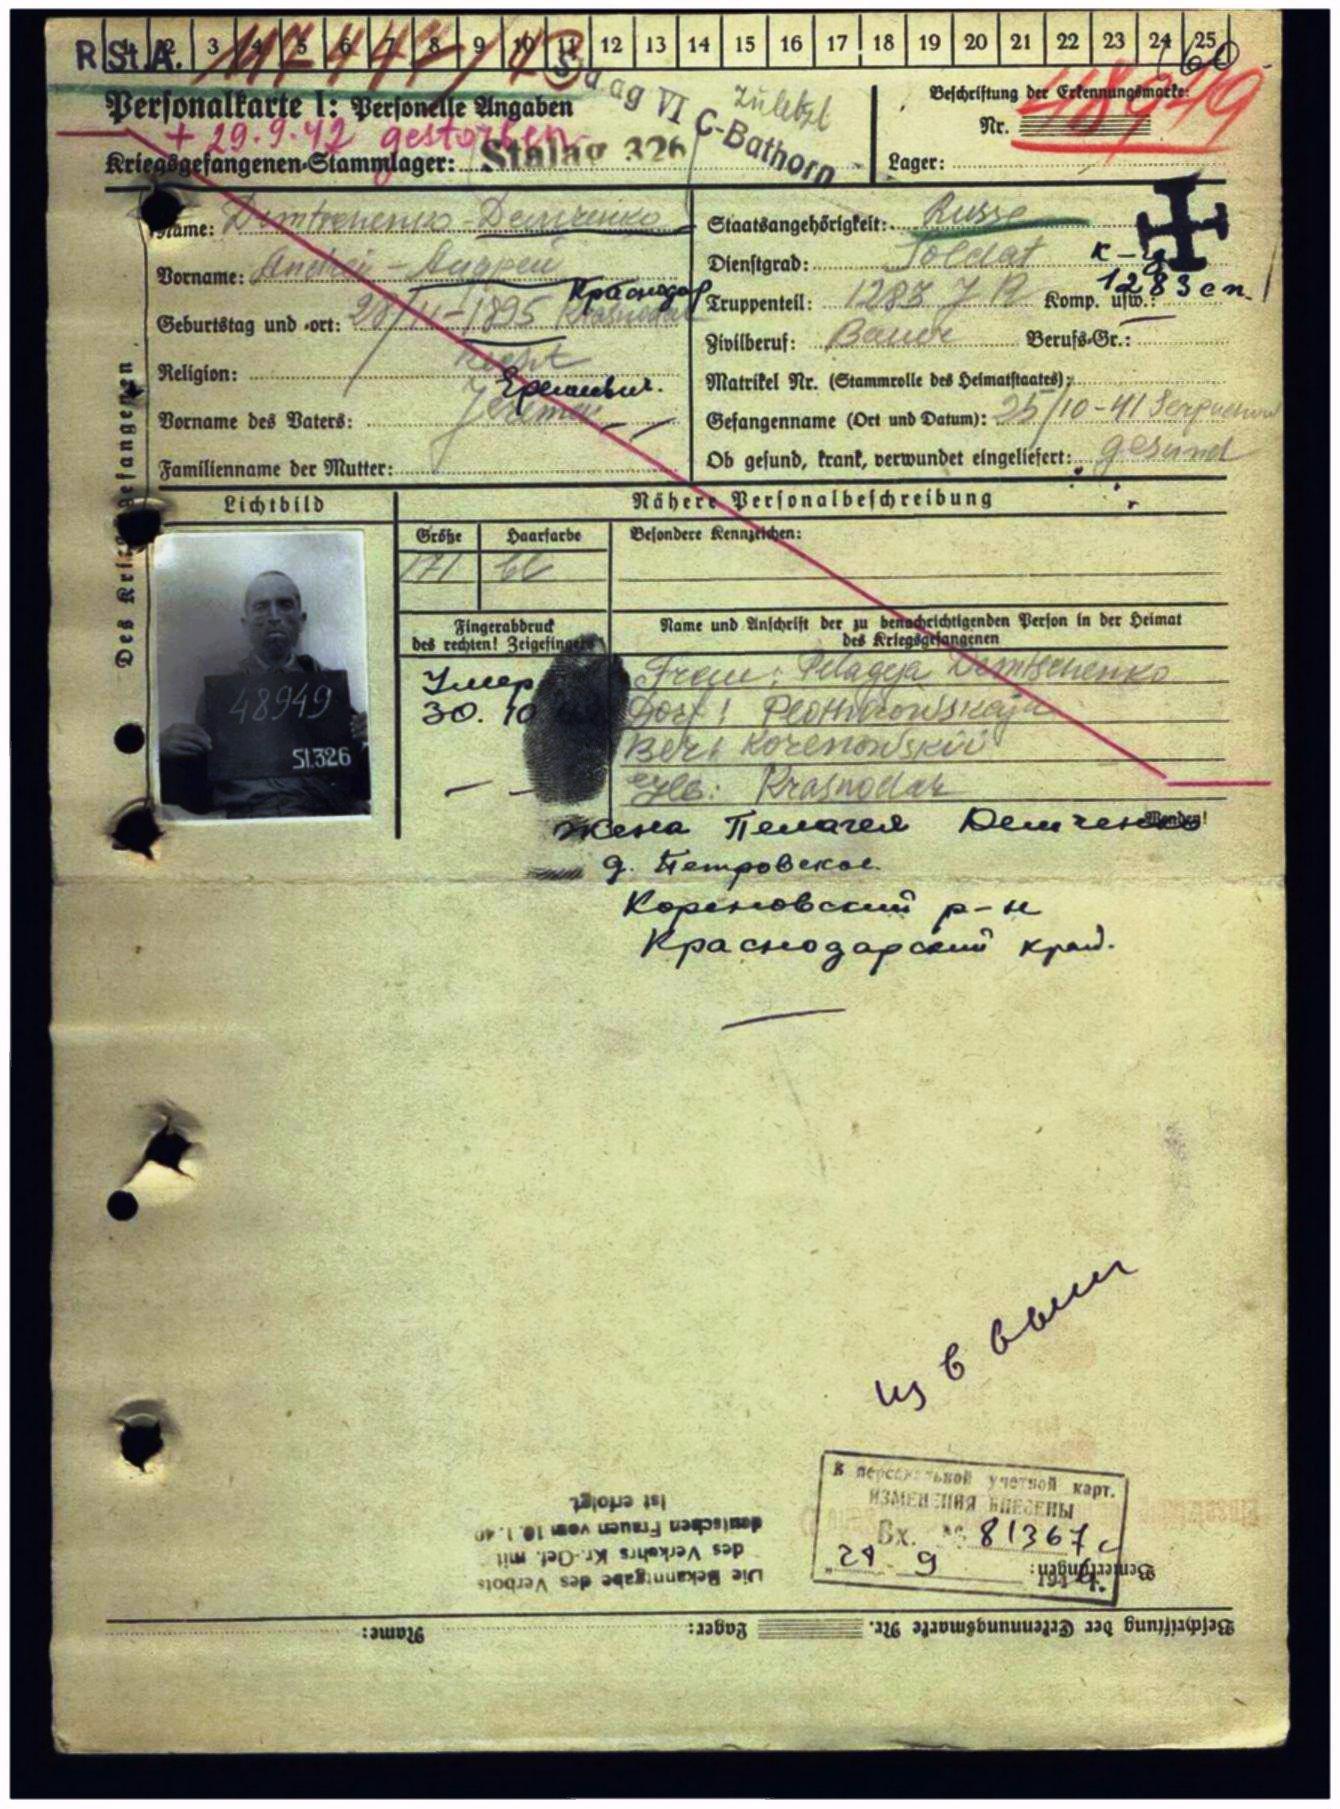 R.St.A.
1 2 3 4 5 6 7 8 9 10 11 12 13 14 15 16 17 18 19 20 21 22 23 24 25
Personalkarte I: Personelle Angaben
+ 29.9.42 gestorben
Kriegsgefangenen-Stammlager: Stalag 326
VI C-Bathorn
Zuletzt
Beschriftung der Erkennungsmarke:
Nr. 48949
Lager:
Des Kriegsgefangenen
Name: Demtschenko - Демченко
Vorname: Andrei - Андрей
Краснодар
Geburtstag und -ort: 28/11-1895 Krasnodar
Religion:
Еремеевич.
Vorname des Vaters: Jeremei
Familienname der Mutter:
Staatsangehörigkeit: Russe
Dienstgrad: Soldat
Truppenteil: 1283 J R Komp. usw.:
1283 сп.
Zivilberuf: Bauer Berufs-Gr.:
Matrikel Nr. (Stammrolle des Heimatstaates):
Gefangenname (Ort und Datum): 25/10-41 Serpuchow
Ob gesund, krank, verwundet eingeliefert: gesund
Lichtbild
Nähere Personalbeschreibung
Größe Haarfarbe Besondere Kennzeichen:
171 bl
Fingerabdruck
des rechten! Zeigefingers
Name und Anschrift der zu benachrichtigenden Person in der Heimat
des Kriegsgefangenen
48949
St.326
Умер
30. 10
Frau: Pelageja Demtschenko
Dorf:
Korenowskii
Krasnodar
Wenden!
Жена Пелагея Демченко
д. Петровское
Кореновский р-н
Краснодарский край.
из в
В персональной учетной карт.
ИЗМЕНЕНИЯ ВНЕСЕНЫ
Вх. № 81367с
"29 9
Bemerkungen:
Die Bekanntgabe des Verbots
des Verkehrs Kr.-Gef. mit
deutschen Frauen vom 10.1.40
ist erfolgt
Beschriftung der Erkennungsmarke Nr. Lager: Name: